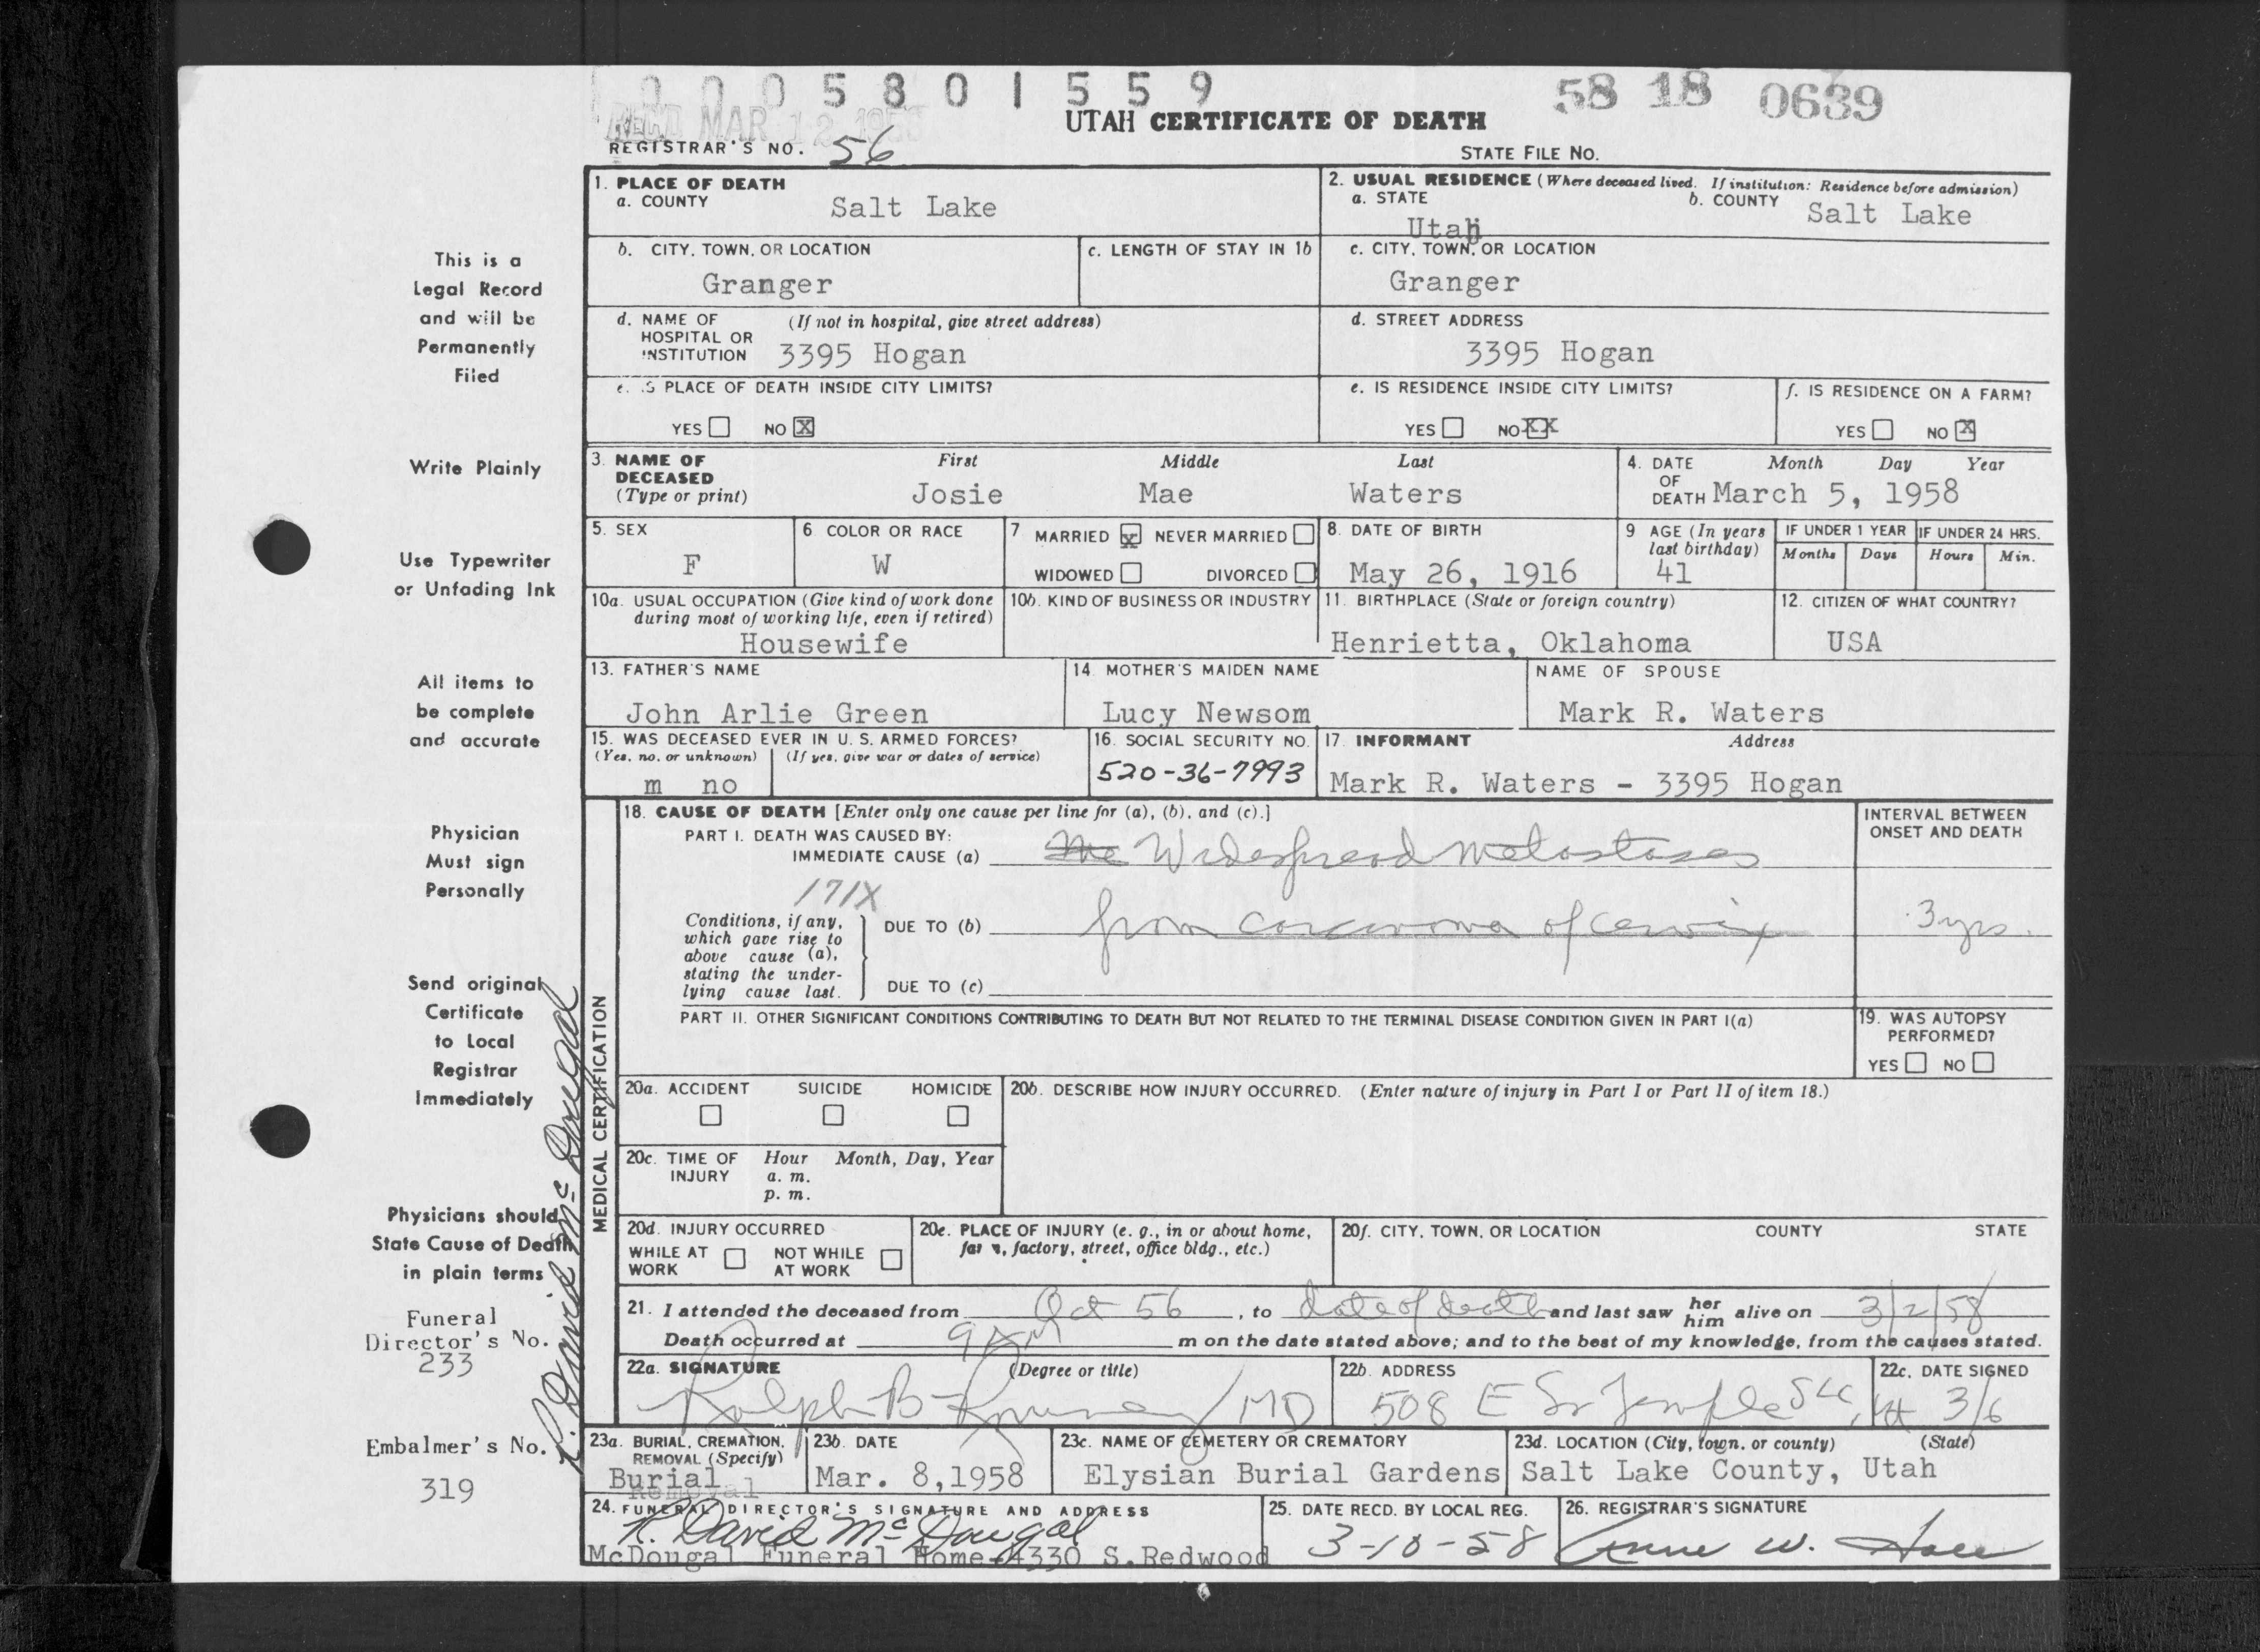 0005801559
58 18 0639
REC'D MAR 12 1958
UTAH CERTIFICATE OF DEATH
REGISTRAR'S NO. 56
STATE FILE NO.
1. PLACE OF DEATH
a. COUNTY Salt Lake
2. USUAL RESIDENCE (Where deceased lived. If institution: Residence before admission)
a. STATE Utah b. COUNTY Salt Lake
b. CITY, TOWN, OR LOCATION Granger
c. LENGTH OF STAY IN 1b
c. CITY, TOWN, OR LOCATION Granger
d. NAME OF HOSPITAL OR INSTITUTION (If not in hospital, give street address) 3395 Hogan
d. STREET ADDRESS 3395 Hogan
e. IS PLACE OF DEATH INSIDE CITY LIMITS?
YES NO X
e. IS RESIDENCE INSIDE CITY LIMITS?
YES NO XX
f. IS RESIDENCE ON A FARM?
YES NO X
3. NAME OF DECEASED (Type or print)
First Middle Last
Josie Mae Waters
4. DATE OF DEATH Month Day Year
March 5, 1958
5. SEX F
6 COLOR OR RACE W
7 MARRIED x NEVER MARRIED
WIDOWED DIVORCED
8. DATE OF BIRTH May 26, 1916
9 AGE (In years last birthday) 41
IF UNDER 1 YEAR Months Days
IF UNDER 24 HRS. Hours Min.
10a. USUAL OCCUPATION (Give kind of work done during most of working life, even if retired)
Housewife
10b. KIND OF BUSINESS OR INDUSTRY
11. BIRTHPLACE (State or foreign country)
Henrietta, Oklahoma
12. CITIZEN OF WHAT COUNTRY?
USA
13. FATHER'S NAME
John Arlie Green
14 MOTHER'S MAIDEN NAME
Lucy Newsom
NAME OF SPOUSE
Mark R. Waters
15. WAS DECEASED EVER IN U. S. ARMED FORCES?
(Yes, no, or unknown) (If yes, give war or dates of service)
m no
16. SOCIAL SECURITY NO.
520-36-7993
17. INFORMANT Address
Mark R. Waters - 3395 Hogan
MEDICAL CERTIFICATION
18. CAUSE OF DEATH [Enter only one cause per line for (a), (b), and (c).]
PART I. DEATH WAS CAUSED BY:
IMMEDIATE CAUSE (a) Widespread metastases
171X
Conditions, if any, which gave rise to above cause (a), stating the underlying cause last.
DUE TO (b) from carcinoma of cervix
DUE TO (c)
INTERVAL BETWEEN ONSET AND DEATH
3 yrs.
PART II. OTHER SIGNIFICANT CONDITIONS CONTRIBUTING TO DEATH BUT NOT RELATED TO THE TERMINAL DISEASE CONDITION GIVEN IN PART I(a)
19. WAS AUTOPSY PERFORMED?
YES NO
20a. ACCIDENT SUICIDE HOMICIDE
20b. DESCRIBE HOW INJURY OCCURRED. (Enter nature of injury in Part I or Part II of item 18.)
20c. TIME OF INJURY Hour Month, Day, Year
a. m.
p. m.
20d. INJURY OCCURRED
WHILE AT WORK NOT WHILE AT WORK
20e. PLACE OF INJURY (e. g., in or about home, farm, factory, street, office bldg., etc.)
20f. CITY, TOWN, OR LOCATION COUNTY STATE
21. I attended the deceased from Oct 56, to date of death and last saw her him alive on 3/2/58
Death occurred at 9 AM m on the date stated above; and to the best of my knowledge, from the causes stated.
22a. SIGNATURE (Degree or title)
Ralph B MD
22b. ADDRESS
508 E So Temple SLC, Ut
22c. DATE SIGNED
3/6
23a. BURIAL, CREMATION, REMOVAL (Specify)
Burial
Removal
23b. DATE
Mar. 8,1958
23c. NAME OF CEMETERY OR CREMATORY
Elysian Burial Gardens
23d. LOCATION (City, town, or county) (State)
Salt Lake County, Utah
24. FUNERAL DIRECTOR'S SIGNATURE AND ADDRESS
R. David McDougal
McDougal Funeral Home-4330 S.Redwood
25. DATE RECD. BY LOCAL REG.
3-10-58
26. REGISTRAR'S SIGNATURE
Anne W.
This is a
Legal Record
and will be
Permanently
Filed
Write Plainly
Use Typewriter
or Unfading Ink
All items to
be complete
and accurate
Physician
Must sign
Personally
Send original
Certificate
to Local
Registrar
Immediately
Physicians should
State Cause of Death
in plain terms
Funeral
Director's No.
233
Embalmer's No.
319
R. David McDougal